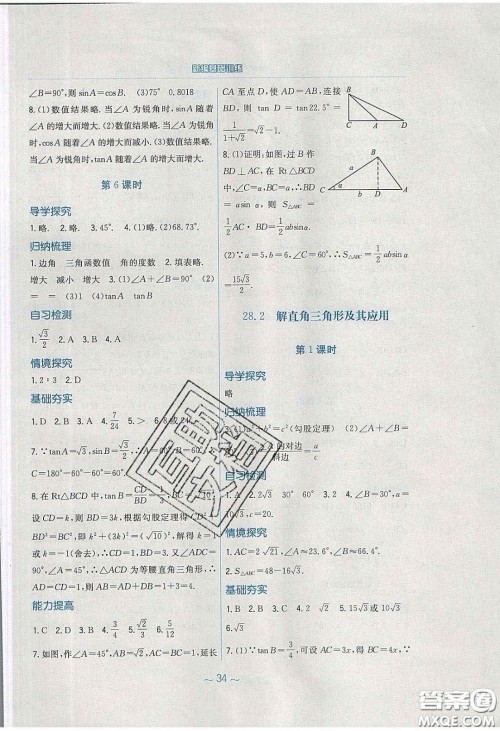 新编基础训练
∠B=90°,则 sinA=cosB. (3)75° 0.8018
8.(1)数值结果略.当∠A为锐角时,sinA随着
∠A的增大而增大.(2)数值结果略.当∠A为锐角
时,cosA随着∠A的增大而减小.(3)数值结果略.
当∠A为锐角时,tanA随着∠A的增大而增大.
第6课时
导学探究
1.略. 2.略. 3.45°. 4.(1)略.(2)68.73°.
归纳梳理
1.边角 三角函数值 角的度数 2.填表略.
增大 减小 增大 3.(1)∠A+∠B=90° (2)
= = (3)1 (4)tanA tanB
自习检测
1.√3/2 2.A 3.B 4.A
情境探究
1.2:3 2.D
基础夯实
1.D 2.B 3.D 4.7/24 5.> 6.8或24
7.∵tanA=√3,sinB=
C=180°-60°-60°=60°.
8.在Rt△BCD中,tanB=CD/BD=1/3,BC=√10,
CD=k,则BD=3k,根据勾股定理得CD²+
BD²=BC²,即k²+(3k)²=(√10)²,解得k=1或
k=-1(舍去),∴CD=1,BD=3.又∠ADC=
90°,∠A=45°,∴△ACD为等腰直角三角形,∴
AD=CD=1,∴AB=AD+DB=1+3=4.
能力提高
1.C 2.D 3.A 4.√2 5.√3 6.5/12
7.如图,作∠A=45°,AC=BC,∠C=90°,延长
CA至点D,使AD=AB,连接
BD,则 tanD=tan22.5°=
1/(1+√2)=√2-1.
B
C A D
8.(1)证明:如图,过B作
BD⊥AC,在Rt△BCD
中,∠C=α,BC=a,∴BD
=asinα,则S△ABC=
1/2 AC·BD=1/2 absinα.
B
C a α b D A
(2)∵a=5,b=6,∠C=60°,∴S△ABC=1/2 absinα
=15√3/2.
28.2 解直角三角形及其应用
第1课时
导学探究
略
归纳梳理
b²=c²(勾股定理) (2)∠A+∠B=
的对边/斜边=a/c
自习检测
1.A 2.2√3 30° 60° 3.2 4.∠B=60°,a=
10√3,c=20.
情境探究
1.AC=2√21,∠A≈23.6°,∠B≈66.4°.
2.S△ABC=48-16√3.
基础夯实
1.B 2.B 3.C 4.√2 5.15√3或10√3
6.4√3 7.(1)∵tanB=3/4,可设AC=3k,得BC=
~ 34 ~
答案圈
MXQE.COM